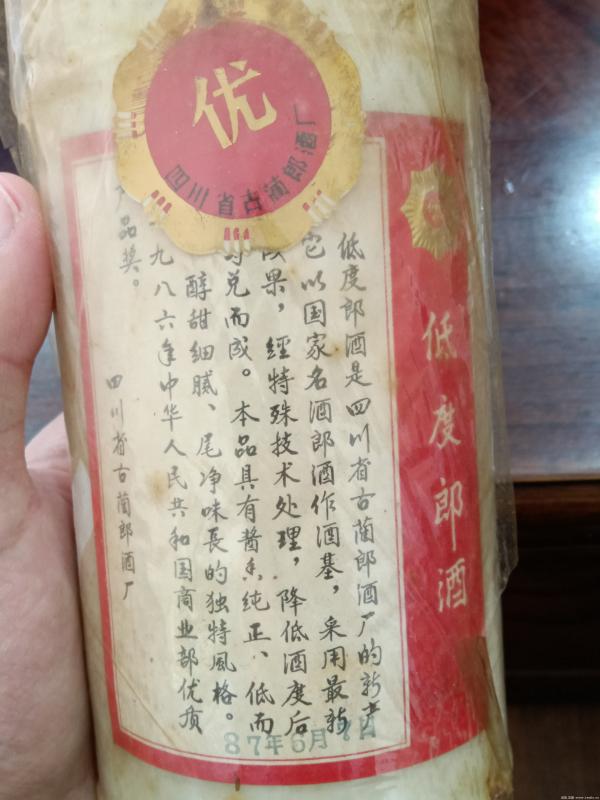 优
四川省古蔺郎酒厂
低度郎酒
低度郎酒是四川省古蔺郎酒厂的新产
它以国家名酒郎酒作酒基，采用最新
果，經特殊技术处理，降低酒度后
兑而成。本品具有醬香纯正、低而
醇甜细腻、尾净味長的独特風格。
九八六年中华人民共和国商业部优质
产品奖。
四川省古蔺郎酒厂
87年6月 日